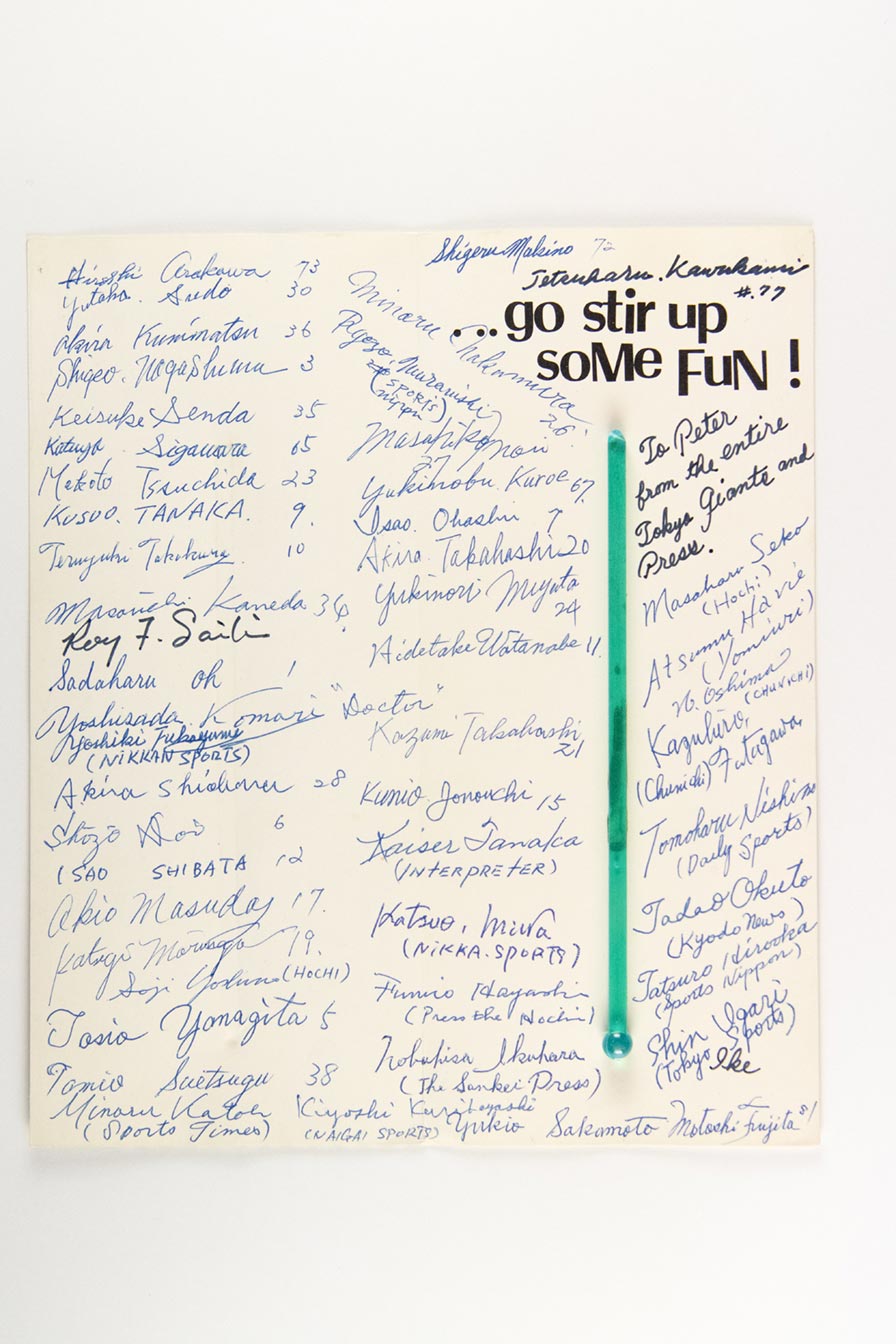 Shigeru Makino 72
Tetsuharu. Kawakami
#.77
...go stir up
soMe FuN !
To Peter
from the entire
Tokyo Giants and
Press.
Hiroshi Arakawa 73
Yutaka. Sudo 30
Akira Kunimatsu 36
Shigeo. Nagashima 3
Keisuke Senda 35
Katsuya Sigawara 65
Makoto Tsuchida 23
KUSUO. TANAKA. 9.
Teruyuki Takakura 10
Masaichi Kaneda 34
Roy F. Saiki
Sadaharu Oh 1
Yoshisada Komori "Doctor"
Yoshiki Fukayumi
(NIKKAN SPORTS)
Akira Shiobara 28
Shozo Doi 6
ISAO SHIBATA 12
Akio Masuda 17.
19.
Soji (HOCHI)
Tosio Yanagita 5
Tamio Suetsugu 38
Minoru Katoh
(Sports Times)
Minoru Nakamura
26
Ryozo. Muranishi
(SPORTS
Nippon)
Masahiko Mori
27
Yukinobu. Kuroe 67.
Isao. Ohashi 7
Akira. Takahashi 20
Yukinori Miyata
24
Hidetake Watanabe 11.
Kazumi Takahashi
21
Kunio Jonouchi 15
Kaiser Tanaka
(INTERPRETER)
Katsuo, Miwa
(NIKKA. SPORTS)
Fumio Hayashi
(Press the Hochi)
Nobuhisa Ikuhara
(The Sankei Press)
Kiyoshi Kuribayashi
(NAIGAI SPORTS)
Yukio Sakamoto
Motoshi Fujita 81
Masaharu Seko
(Hochi)
Atsumu Harie
(Yomiuri)
N. Oshima
(CHUNICHI)
Kazuhiro,
(Chunichi) Futagawa,
Tomoharu Nishino
(Daily Sports)
Tadao Okuto
(Kyodo News)
Tatsuro Hirooka
(Sports Nippon)
Shin Ugari
(Tokyo Sports)
Ike